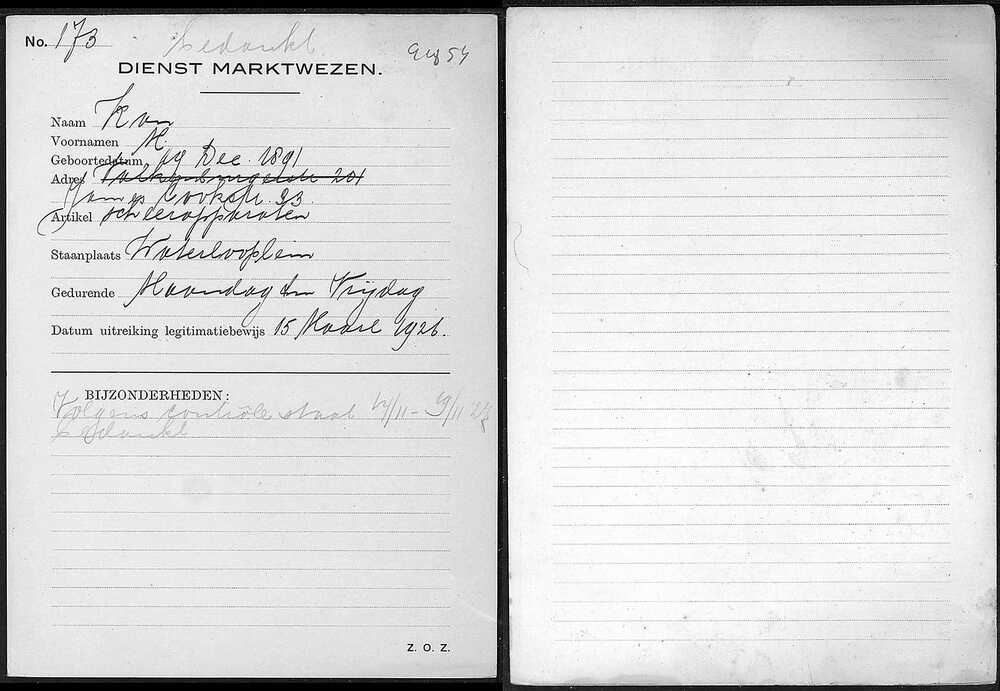 No. 173
bedankt
DIENST MARKTWEZEN.
Naam Kan
Voornamen M.
Geboortedatum 19 Dec. 1891
Adres Valkenburgerstr 201
James Cookstr. 33
Artikel scheerapparaten
Staanplaats Waterlooplein
Gedurende Maandag t/m Vrijdag
Datum uitreiking legitimatiebewijs 15 Maart 1926.
BIJZONDERHEDEN:
Volgens contrôle staat 14/11 - 19/11 27
bedankt
Z. O. Z.